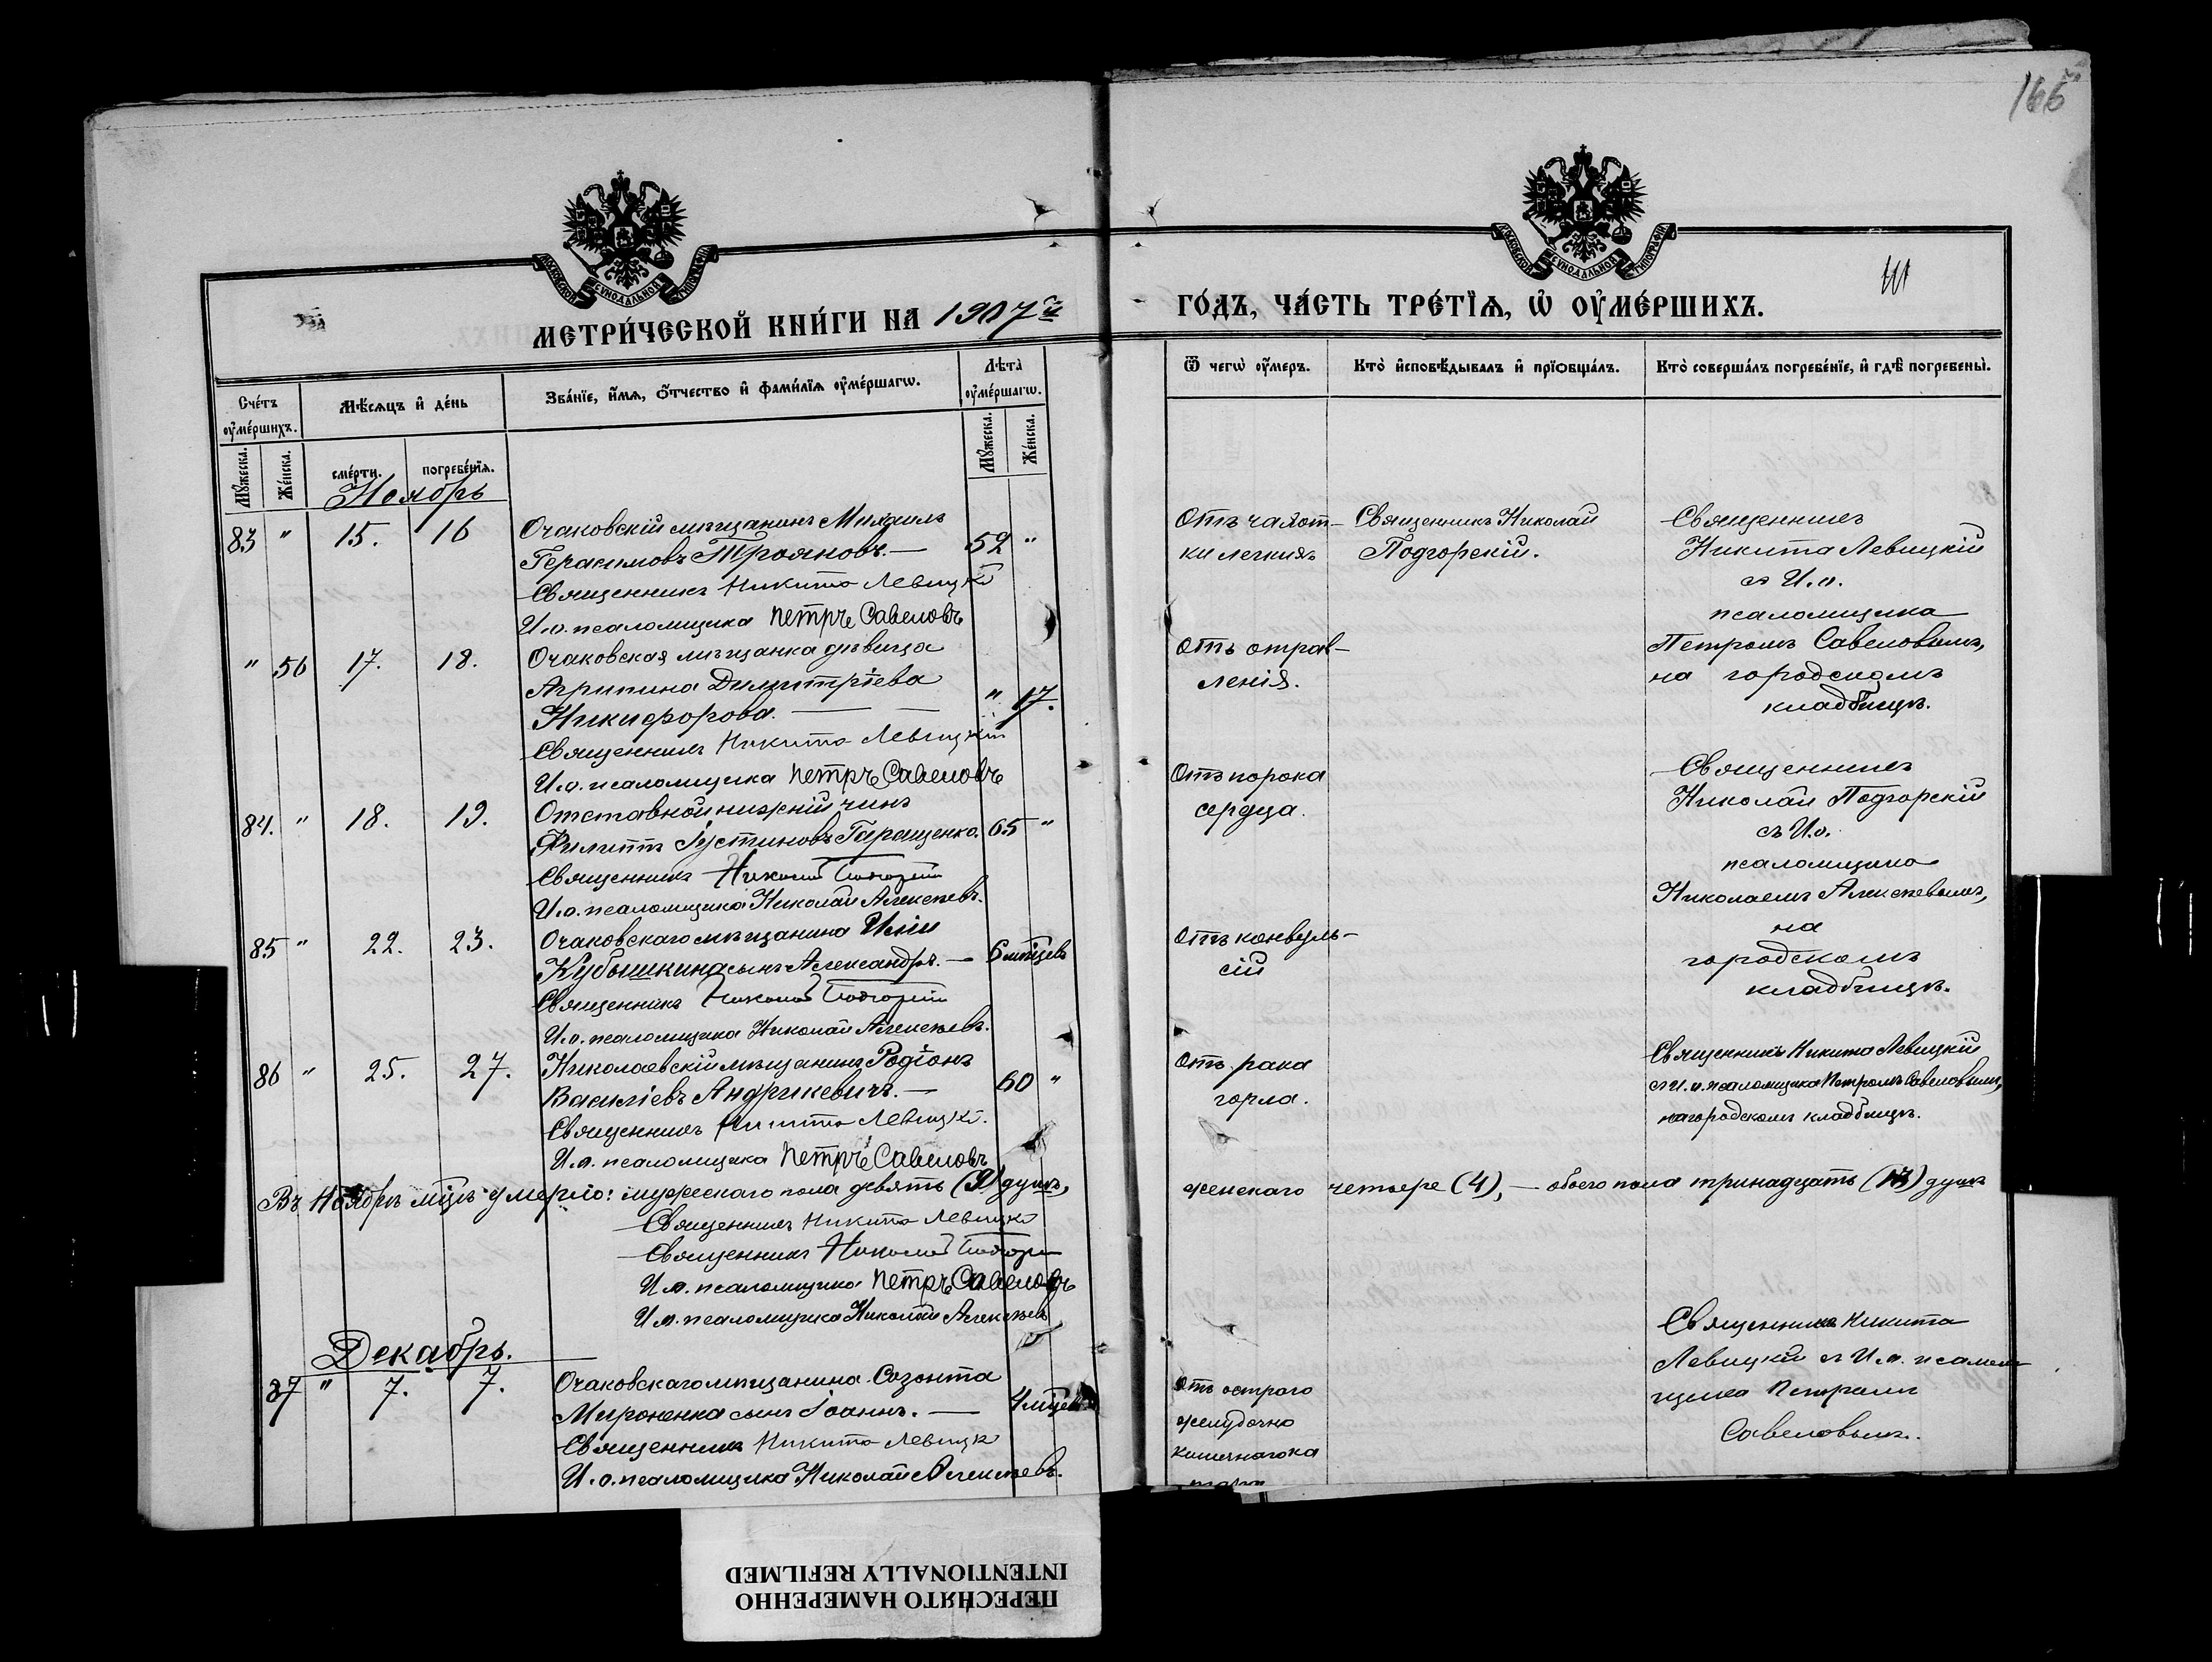 166
МОСКОВСКОЙ СѴНОДАЛЬНОЙ ТИПОГРАФІИ
МОСКОВСКОЙ СѴНОДАЛЬНОЙ ТИПОГРАФІИ
МЕТРИ́ЧЕСКОЙ КНИ́ГИ НА 1907й
ГО́ДЪ, ЧА́СТЬ ТРЕ́ТЇѦ, Ѡ҆ ОУ҆МЕ́РШИХЪ.
Сче́тъ оу҆ме́ршихъ.
Мѣ́сѧцъ и҆ де́нь
Зва́нїе, и҆́мѧ, ѻ҆́тчество и҆ фами́лїѧ оу҆ме́ршагѡ.
Лѣ́та оу҆ме́ршагѡ.
Ѿ чегѡ̀ оу҆́меръ.
Кто̀ и҆сповѣ́дывалъ и҆ прїѡбща́лъ.
Кто̀ соверша́лъ погребе́нїе, и҆ гдѣ̀ погребены̀.
Мꙋ́жеска.
Же́нска.
сме́рти.
погребе́нїѧ.
Мꙋ́жеска.
Же́нска.
Ноябрь
83 " 15. 16
Очаковскій мѣщанинъ Михаилъ
Герасимовъ Трояновъ. — 52 "
Священникъ Никита Левицкій
И. о. псаломщика Петръ Савеловъ
Отъ чахот-
ки легкихъ
Священникъ Николай
Подгорскій.
Священникъ
Никита Левицкій
съ И. о.
псаломщика
Петромъ Савеловымъ,
на городскомъ
кладбищѣ.
" 56 17. 18.
Очаковская мѣщанка дѣвица
Агрипина Димитріева
Никифорова. — — " 17.
Священникъ Никита Левицкій
И. о. псаломщика Петръ Савеловъ
Отъ отрав-
ленія.
84. " 18. 19.
Отставной нижній чинъ
Филиппъ Іустиновъ Таращенко. 65 "
Священникъ Николай Подгорскій
И. о. псаломщика Николай Алексѣевъ.
Отъ порока
сердца.
Священникъ
Николай Подгорскій
съ И. о.
псаломщика
Николаемъ Алексѣевымъ,
на
городскомъ
кладбищѣ.
85 " 22. 23.
Очаковскаго мѣщанина Иліи
Кубышкина сынъ Александръ. — 6 мѣсяцевъ
Священникъ Николай Подгорскій
И. о. псаломщика Николай Алексѣевъ.
Отъ конвуль-
сій
86 " 25. 27.
Николаевскій мѣщанинъ Родіонъ
Василіевъ Андрикевичъ. — 60 "
Священникъ Никита Левицкій.
И. о. псаломщика Петръ Савеловъ
Отъ рака
горла.
Священникъ Никита Левицкій
съ И. о. псаломщика Петромъ Савеловымъ,
на городскомъ кладбищѣ.
Въ Ноябрѣ мцѣ умерло: мужескаго пола девять (9) душъ,
женскаго четыре (4), — обоего пола тринадцать (13) душъ
Священникъ Никита Левицкій
Священникъ Николай Подгорскій
И. о. псаломщика Петръ Савеловъ
И. о. псаломщика Николай Алексѣевъ
Декабрь.
87 " 7. 7.
Очаковскаго мѣщанина Созонта
Мироненка сынъ Іоаннъ. — 4 мцевъ
Священникъ Никита Левицкій
И. о. псаломщика Николай Алексѣевъ.
Отъ остраго
желудочно
кишечнаго ка
Священникъ Никита
Левицкій съ И. о. псалом
щика Петромъ
Савеловымъ.
ПЕРЕСНЯТО НАМЕРЕННО
INTENTIONALLY REFILMED